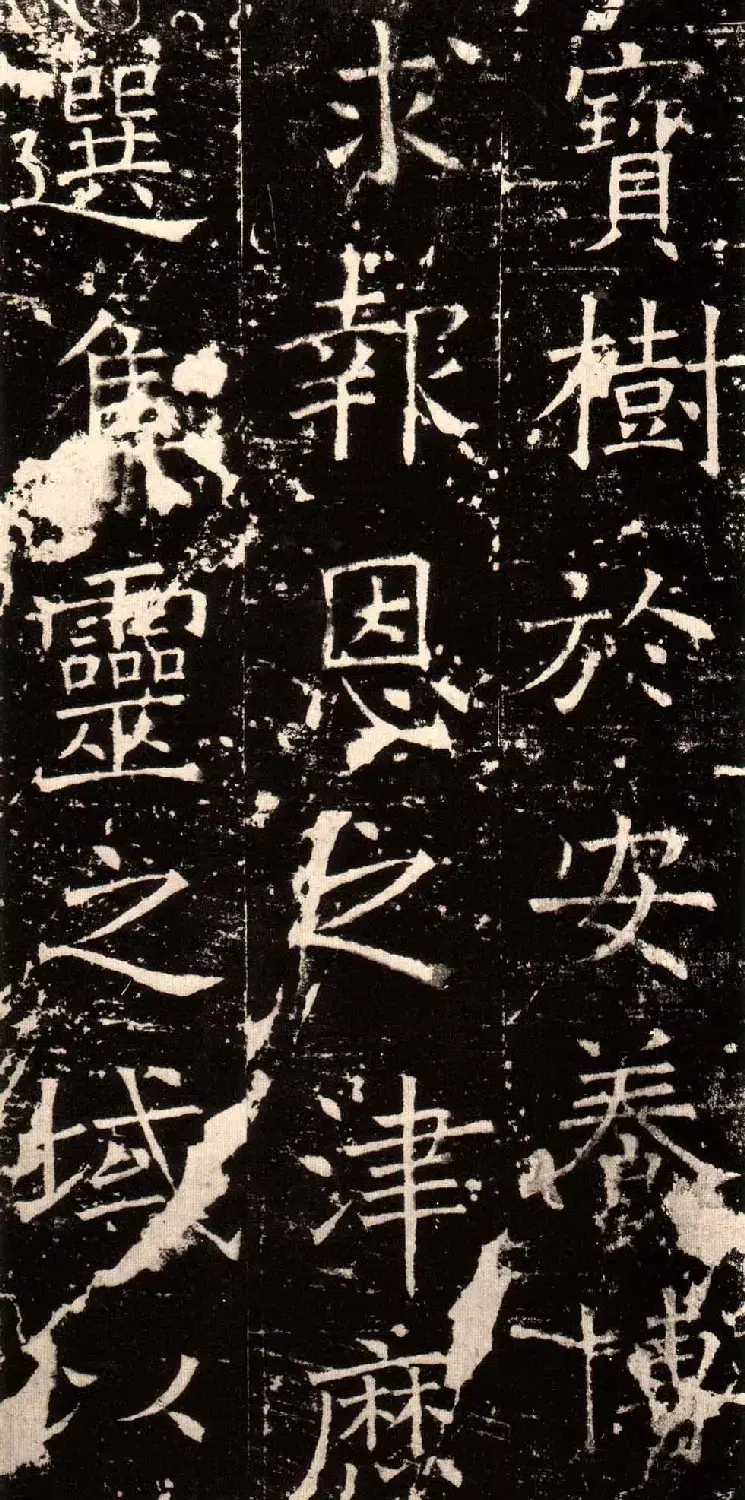 寶樹於安養博
求報恩之津麽
選集靈之域以